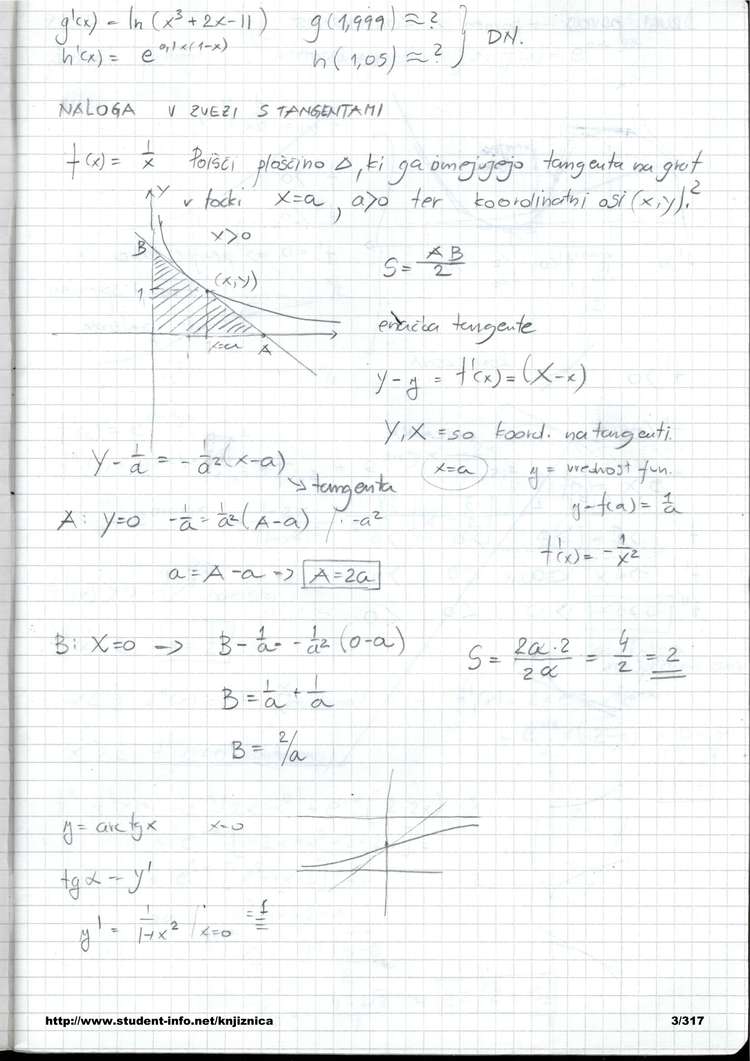 g'(x) = ln (x³ + 2x - 11)   g(1,999) ≈ ?
h'(x) = e^0,1x(1-x)   h(1,05) ≈ ?   } DN.
NALOGA V ZVEZI S TANGENTAMI
f(x) = 1/x   Poišči ploščino △, ki ga omejujejo tangenta na graf
v točki x=a, a>0 ter koordinatni osi (x,y).²
Y
x>0
B
(x,y)
1
x=a
A
S = AB/2
enačba tangente
y - y = f'(x) = (X-x)
Y, X = so koord. na tangenti.
x=a   y = vrednost fun.
y = f(a) = 1/a
f'(x) = - 1/x²
Y - 1/a = - 1/a² (x-a)
↘ tangenta
A: Y=0   -1/a = 1/a² (A-a) / · -a²
a = A - a -> A=2a
B: X=0 -> B - 1/a = - 1/a² (0-a)
B = 1/a + 1/a
B = 2/a
S = 2a·2/2a = 4/2 = 2
y = arctgx   x=0
tgα = y'
y' = 1/1+x² | x=0 = 1
http://www.student-info.net/knjiznica   3/317